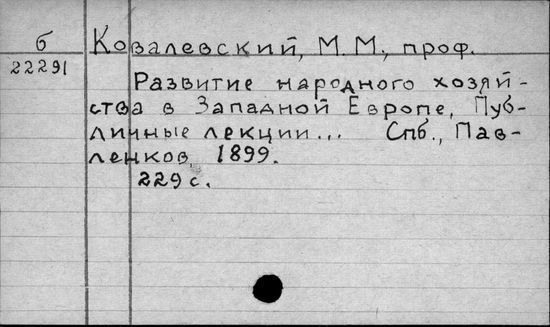 б
22291
Ковалевский, М. М., проф.
Развитие народного хозяй-
ства в Западной Европе, Пуб-
личные лекции... Спб., Пав-
ленков, 1899.
229 с.